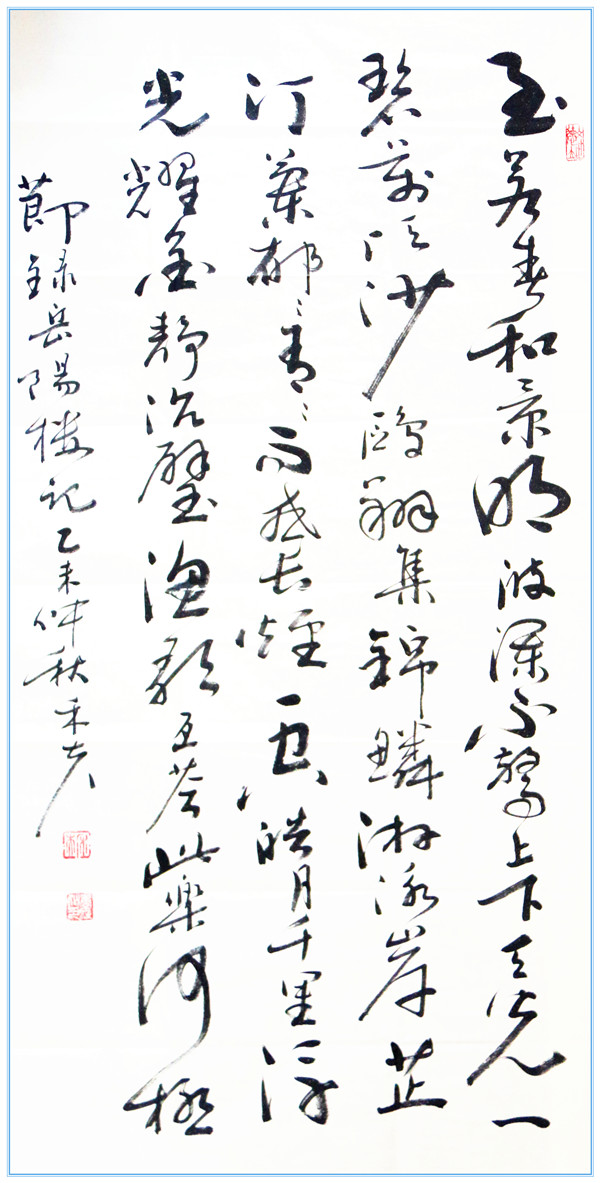 至若春和景明波瀾不驚上下天光一
碧萬頃沙鷗翔集錦鱗游泳岸芷
汀蘭郁〻青〻而或長煙一空皓月千里浮
光耀金靜沉璧漁歌互答此樂何極
節録岳陽楼記乙未仲秋